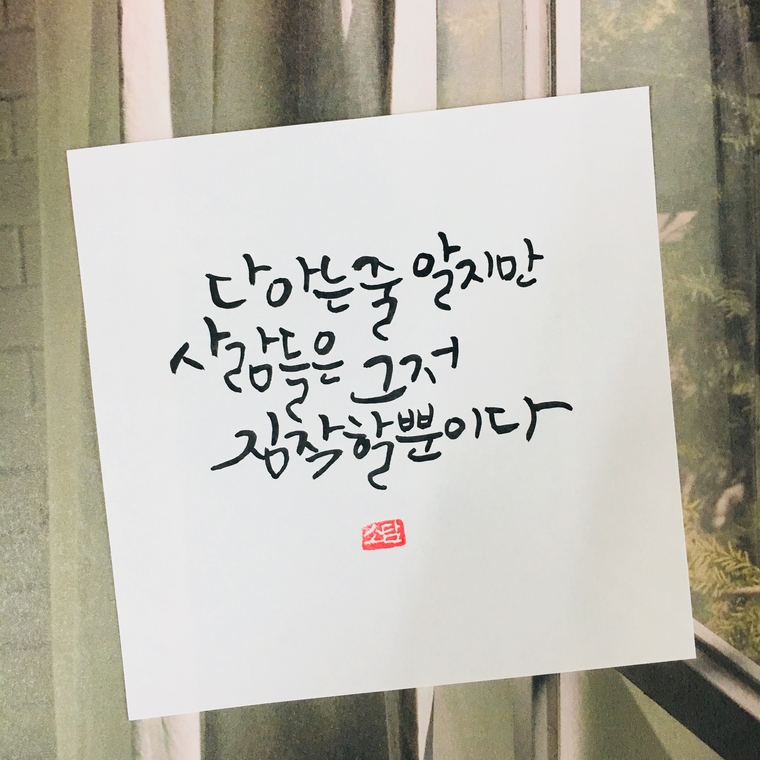 다아는줄 알지만
사람들은 그저
짐작할뿐이다
소담